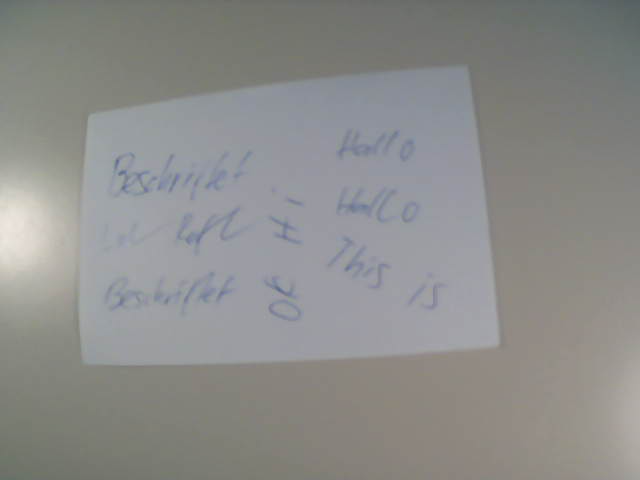 Beschriftet
Lol Rofl
Beschriftet
Hi
OK
Hallo
Hallo
This is